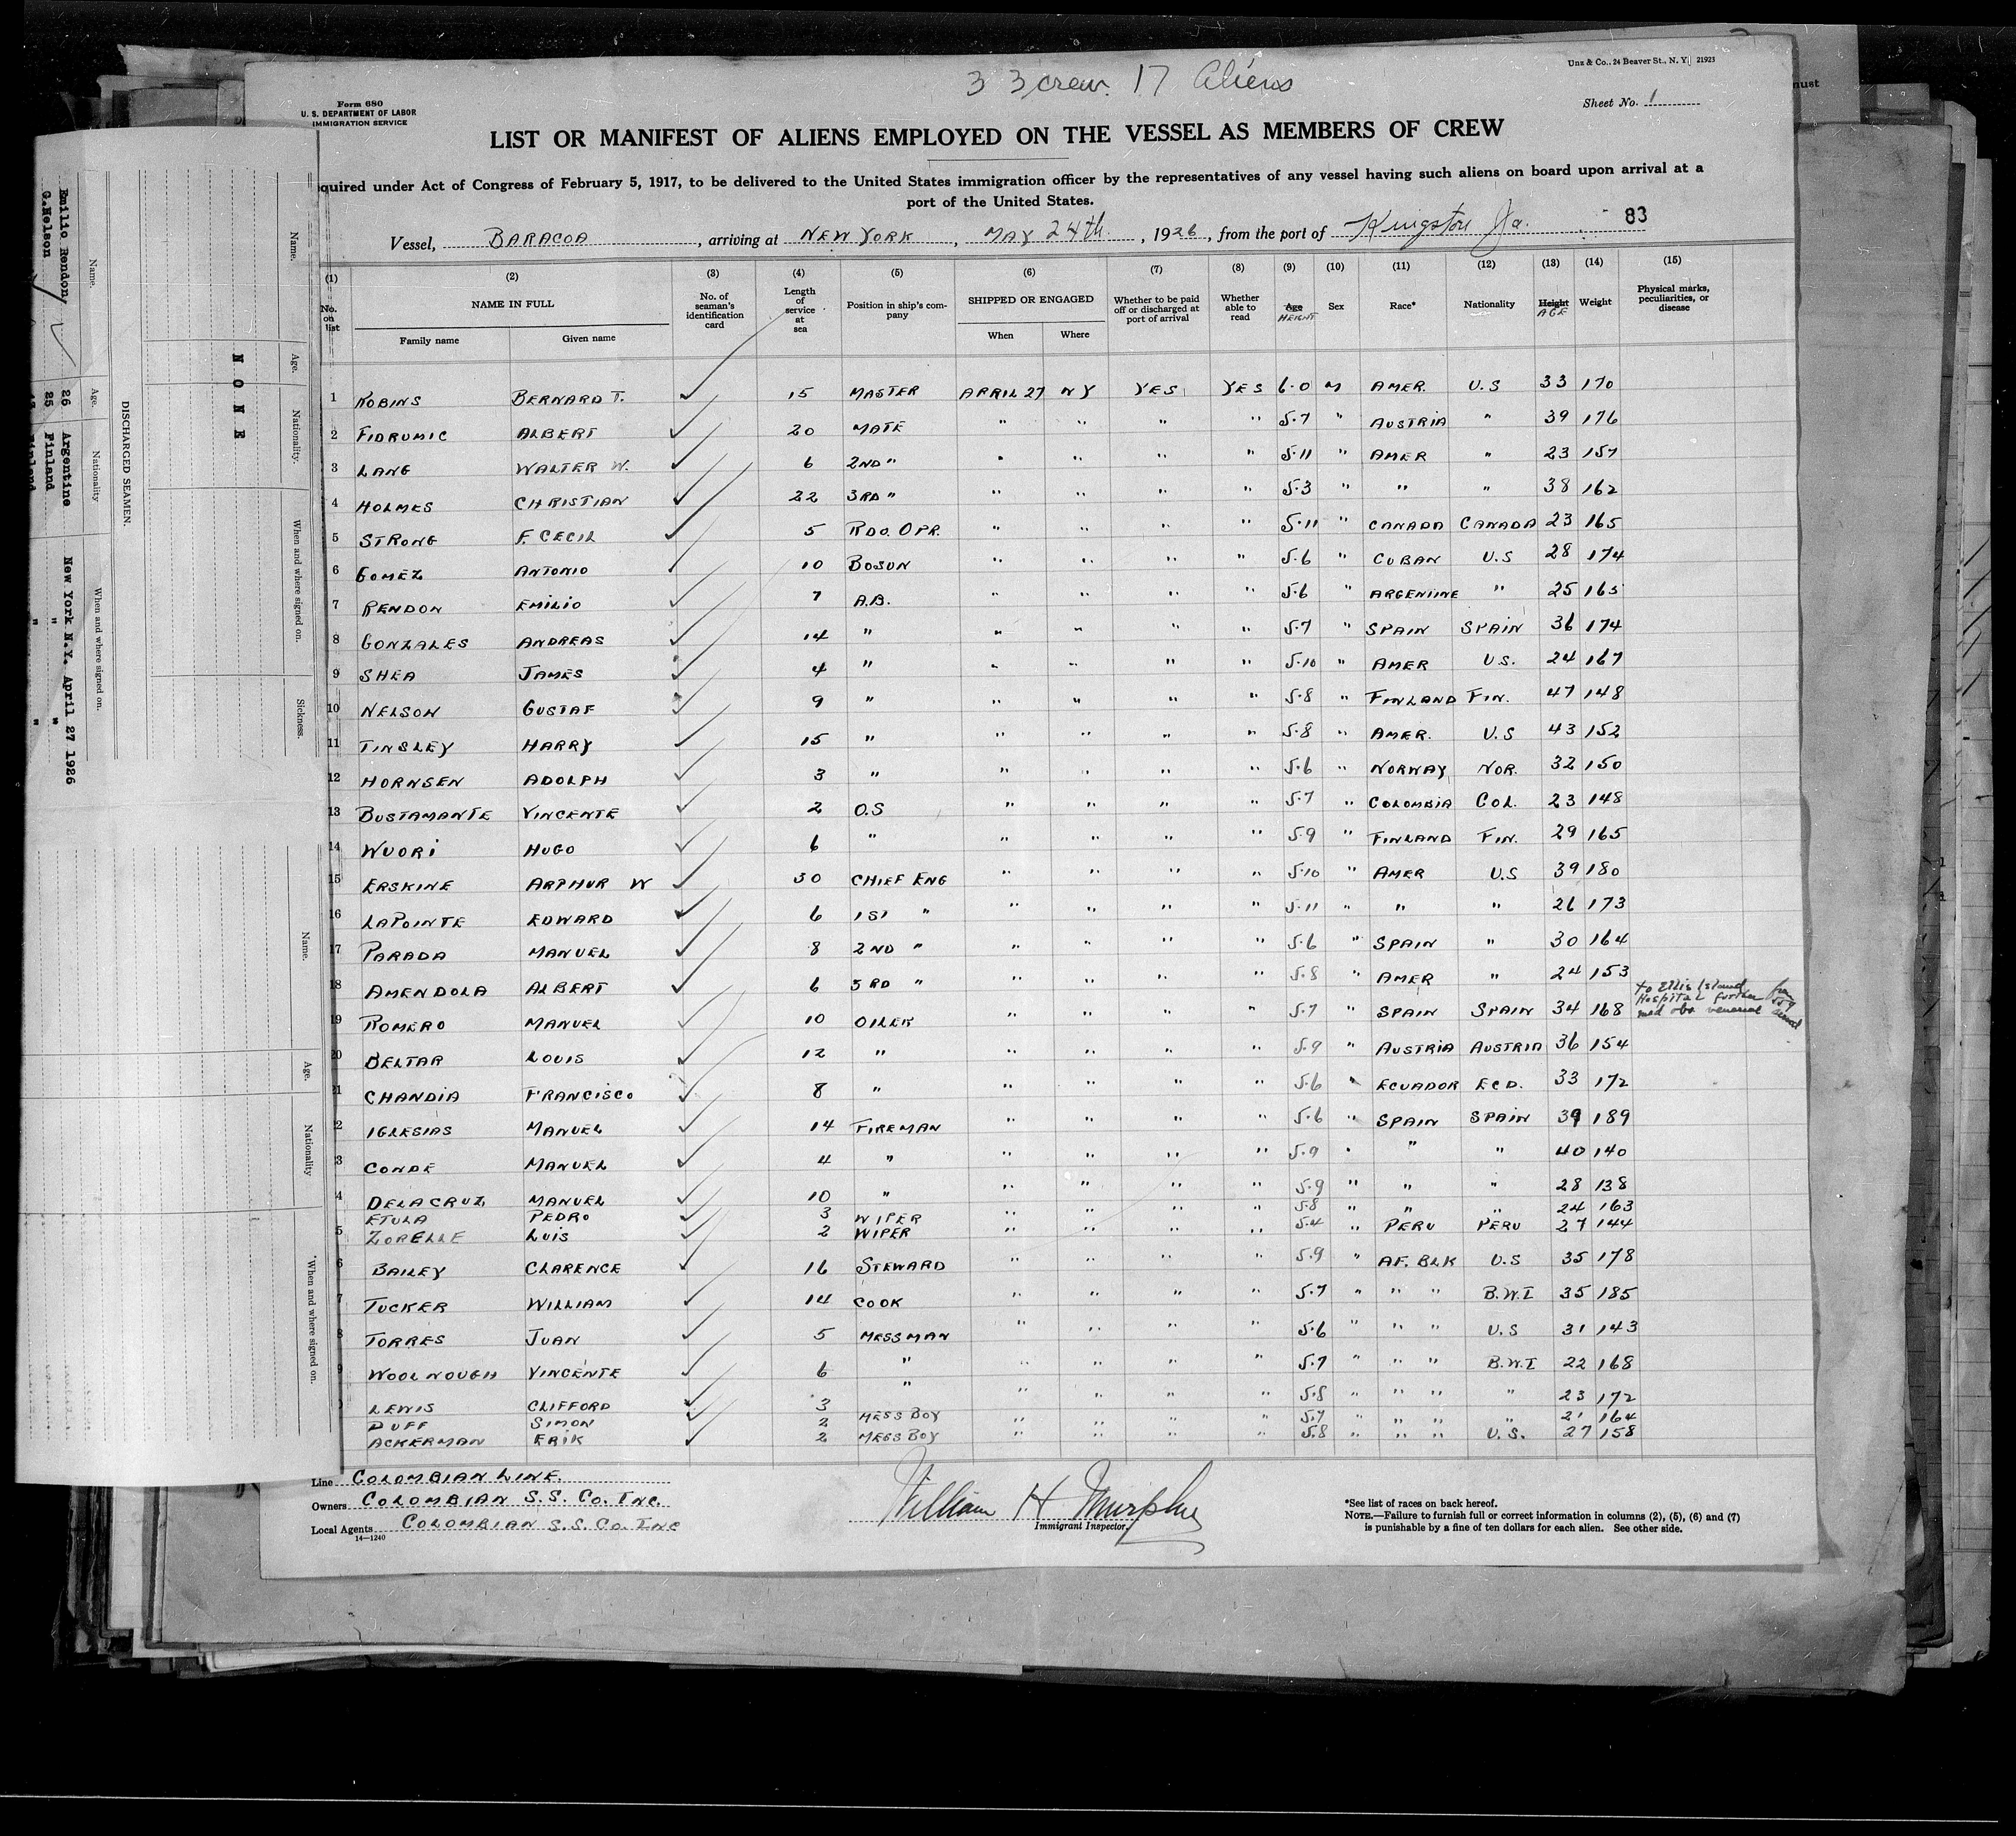 3 3 crew. 17 Aliens
Unz & Co., 24 Beaver St., N. Y. 21923
Form 680
U. S. DEPARTMENT OF LABOR
IMMIGRATION SERVICE
Sheet No. 1
LIST OR MANIFEST OF ALIENS EMPLOYED ON THE VESSEL AS MEMBERS OF CREW
quired under Act of Congress of February 5, 1917, to be delivered to the United States immigration officer by the representatives of any vessel having such aliens on board upon arrival at a
port of the United States.
83
Vessel, BARACOA, arriving at NEW YORK, MAY 24th, 1926, from the port of Kingston Ja.
(1) (2) (3) (4) (5) (6) (7) (8) (9) (10) (11) (12) (13) (14) (15)
No. on list NAME IN FULL No. of seaman's identification card Length of service at sea Position in ship's company SHIPPED OR ENGAGED Whether to be paid off or discharged at port of arrival Whether able to read Age HEIGHT Sex Race* Nationality Height AGE Weight Physical marks, peculiarities, or disease
Family name Given name When Where
1 ROBINS BERNARD T. 15 MASTER APRIL 27 NY YES YES 6-0 M AMER. U.S 33 170
2 FIDRUMIC ALBERT 20 MATE " " " " 5-7 " AUSTRIA " 39 176
3 LANG WALTER W. 6 2ND " " " " " 5-11 " AMER " 23 157
4 HOLMES CHRISTIAN 22 3RD " " " " " 5-3 " " " 38 162
5 STRONG F. CECIL 5 RDO. OPR. " " " " 5-11 " CANADA CANADA 23 165
6 GOMEZ ANTONIO 10 BOSUN " " " " 5-6 " CUBAN U.S 28 174
7 RENDON EMILIO 7 A.B. " " " " 5-6 " ARGENTINE " 25 165
8 GONZALES ANDREAS 14 " " " " " 5-7 " SPAIN SPAIN 36 174
9 SHEA JAMES 4 " " " " " 5-10 " AMER U.S. 24 167
10 NELSON GUSTAF 9 " " " " " 5-8 " FINLAND FIN. 47 148
11 TINSLEY HARRY 15 " " " " " 5-8 " AMER. U.S 43 152
12 HORNSEN ADOLPH 3 " " " " " 5-6 " NORWAY NOR. 32 150
13 BUSTAMANTE VINCENTE 2 O.S " " " " 5-7 " COLOMBIA COL. 23 148
14 WUORI HUGO 6 " " " " " 5-9 " FINLAND FIN. 29 165
15 ERSKINE ARTHUR W 30 CHIEF ENG " " " " 5-10 " AMER U.S 39 180
16 LAPOINTE EDWARD 6 1ST " " " " " 5-11 " " " 26 173
17 PARADA MANUEL 8 2ND " " " " " 5-6 " SPAIN " 30 164
18 AMENDOLA ALBERT 6 3RD " " " " " 5-8 " AMER " 24 153
19 ROMERO MANUEL 10 OILER " " " " 5-7 " SPAIN SPAIN 34 168 to Ellis Island Hospital further med obs venereal
20 BELTAR LOUIS 12 " " " " " 5-9 " AUSTRIA AUSTRIA 36 154
21 CHANDIA FRANCISCO 8 " " " " " 5-6 " ECUADOR ECD. 33 172
2 IGLESIAS MANUEL 14 FIREMAN " " " " 5-6 " SPAIN SPAIN 39 189
3 CONDE MANUEL 4 " " " " " 5-9 " " " 40 140
4 DELACRUZ MANUEL 10 " " " " " 5-9 " " " 28 138
ETULA PEDRO 3 WIPER " " " " 5-8 " " " 24 163
5 ZORELLE LUIS 2 WIPER " " " " 5-4 " PERU PERU 27 144
6 BAILEY CLARENCE 16 STEWARD " " " " 5-9 " AF. BLK U.S 35 178
7 TUCKER WILLIAM 14 COOK " " " " 5-7 " " " B.W.I 35 185
8 TORRES JUAN 5 MESSMAN " " " " 5-6 " " " U.S 31 143
9 WOOLNOUGH VINCENTE 6 " " " " " 5-7 " " " B.W.I 22 168
LEWIS CLIFFORD 3 " " " " " 5-8 " " " " 23 172
DUFF SIMON 2 MESS BOY " " " " 5-7 " " " " 21 164
ACKERMAN ERIK 2 MESS BOY " " " " 5-8 " " " U.S. 27 158
Line COLOMBIAN LINE.
Owners COLOMBIAN S.S. CO. INC.
Local Agents COLOMBIAN S.S. CO. INC
14—1240
William H Murphy
Immigrant Inspector.
*See list of races on back hereof.
NOTE.—Failure to furnish full or correct information in columns (2), (5), (6) and (7)
is punishable by a fine of ten dollars for each alien. See other side.
Name. Age. Nationality. When and where signed on. Sickness.
NONE
DISCHARGED SEAMEN.
Name. Age. Nationality When and where signed on.
Emilio Rendon 26 Argentine New York N.Y. April 27 1926
G.Nelson 25 Finland " "
Finland " "
Name. Age. Nationality When and where signed on.
must